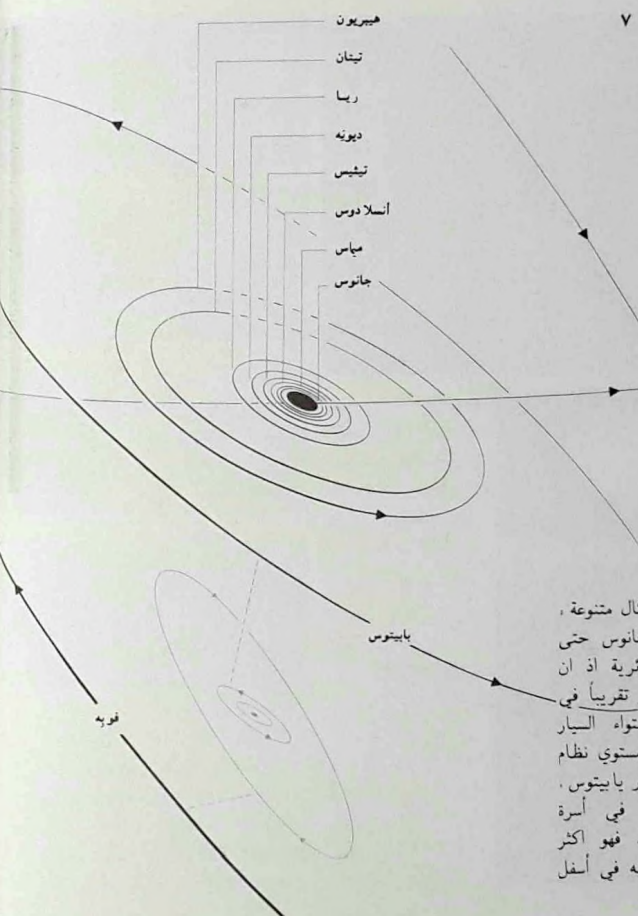 ٧
هيبريون
تيتان
ريا
ديونه
تيثيس
أنسلادوس
مياس
جانوس
بابيتوس
فوبه
متنوعة ،
حتى
اذ ان
تقريباً في
السيار
نظام
يابيتوس .
في أسرة
فهو اكثر
في أسفل